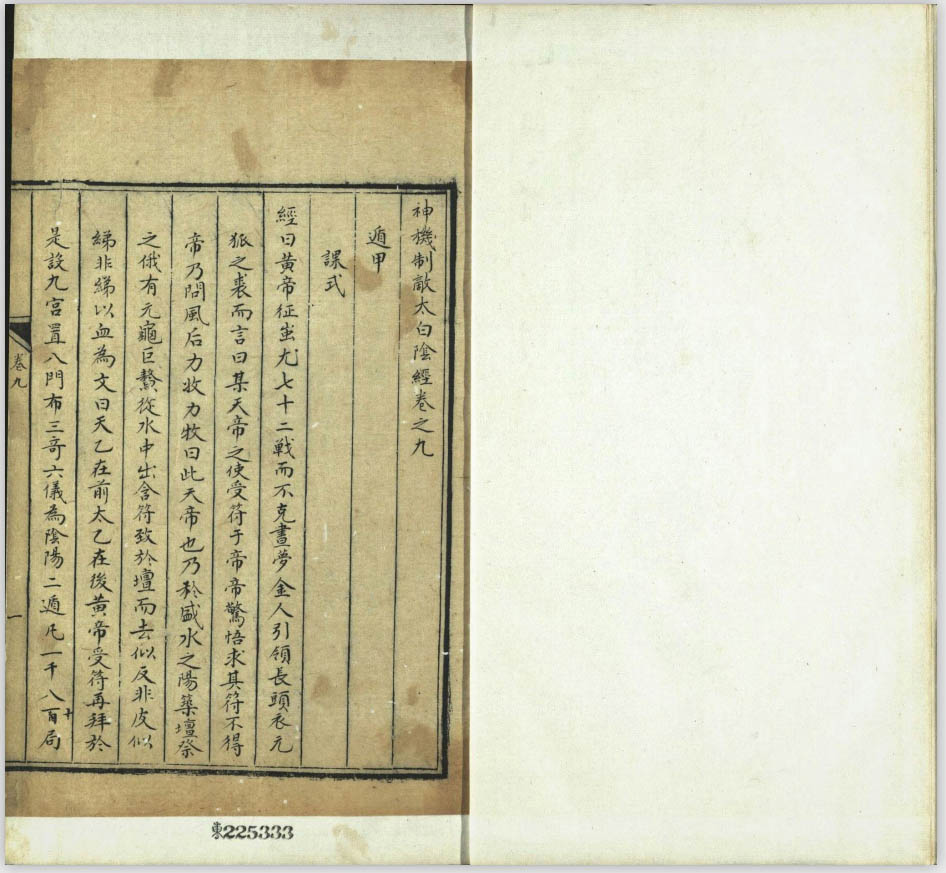 神機制敵太白陰經卷之九
遁甲
課式
經曰黃帝征蚩尤七十二戰而不克晝夢金人引領長頭衣元
狐之裘而言曰某天帝之使受符于帝帝驚悟求其符不得
帝乃問風后力牧力牧曰此天帝也乃於盛水之陽築壇祭
之俄有元龜巨鰲從水中出含符致於壇而去似反非皮似
綈非綈以血為文曰天乙在前太乙在後黃帝受符再拜於
是設九宮置八門布三奇六儀為陰陽二遁凡一千八百十局
卷九
一
東225333